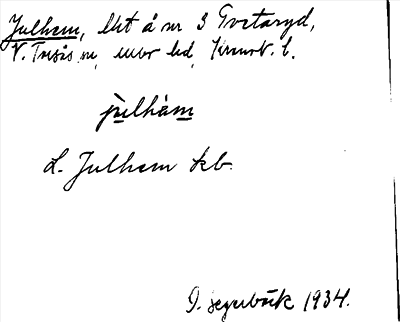 Julhem, lht å nr 3 Tvetaryd,
V. Torsås sn, Kinnev. h.
julhàm
L. Julhem kb.
I. Segerbäck 1934.